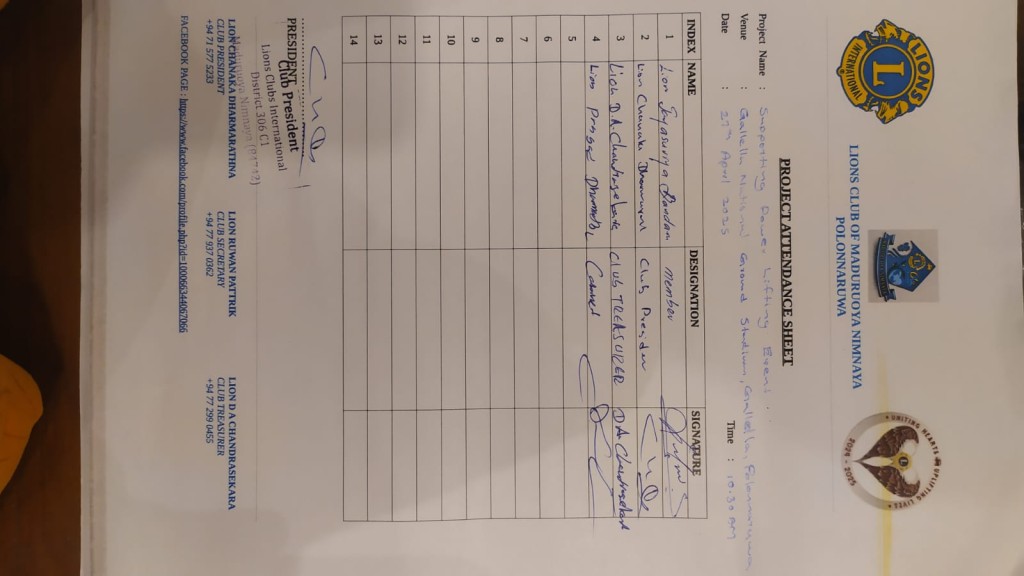 LIONS
L
INTERNATIONAL
UNITING HEARTS UPLIFTING LIVES
LIONS CLUB OF MADURUOYA NIMNAYA
POLONNARUWA
PROJECT ATTENDANCE SHEET
Project Name : Supporting Power Lifting Event
Venue : Gallella National Ground Stadium, Gallella, Polonnaruwa
Date : 27th April 2025 Time : 10.30 AM
INDEX NAME DESIGNATION SIGNATURE
1 Lion Jayasuriya Bandara member
2 Lion Chanaka Club
3 Lion D.A. Chandrasekara CLUB TREASURER D.A. Chandrasekara
4 Lion
5
6
7
8
9
10
11
12
13
14
PRESIDENT
Club President
Lions Clubs International
District 306 C1
LION CHANAKA DHARMARATHNA LION RUWAN PATTRIK LION D A CHANDRASEKARA
CLUB PRESIDENT CLUB SECRETARY CLUB TREASURER
+94 71 577 5233 +94 77 937 0362 +94 77 299 0455
FACEBOOK PAGE : https://www.facebook.com/profile.php?id=100066344067066